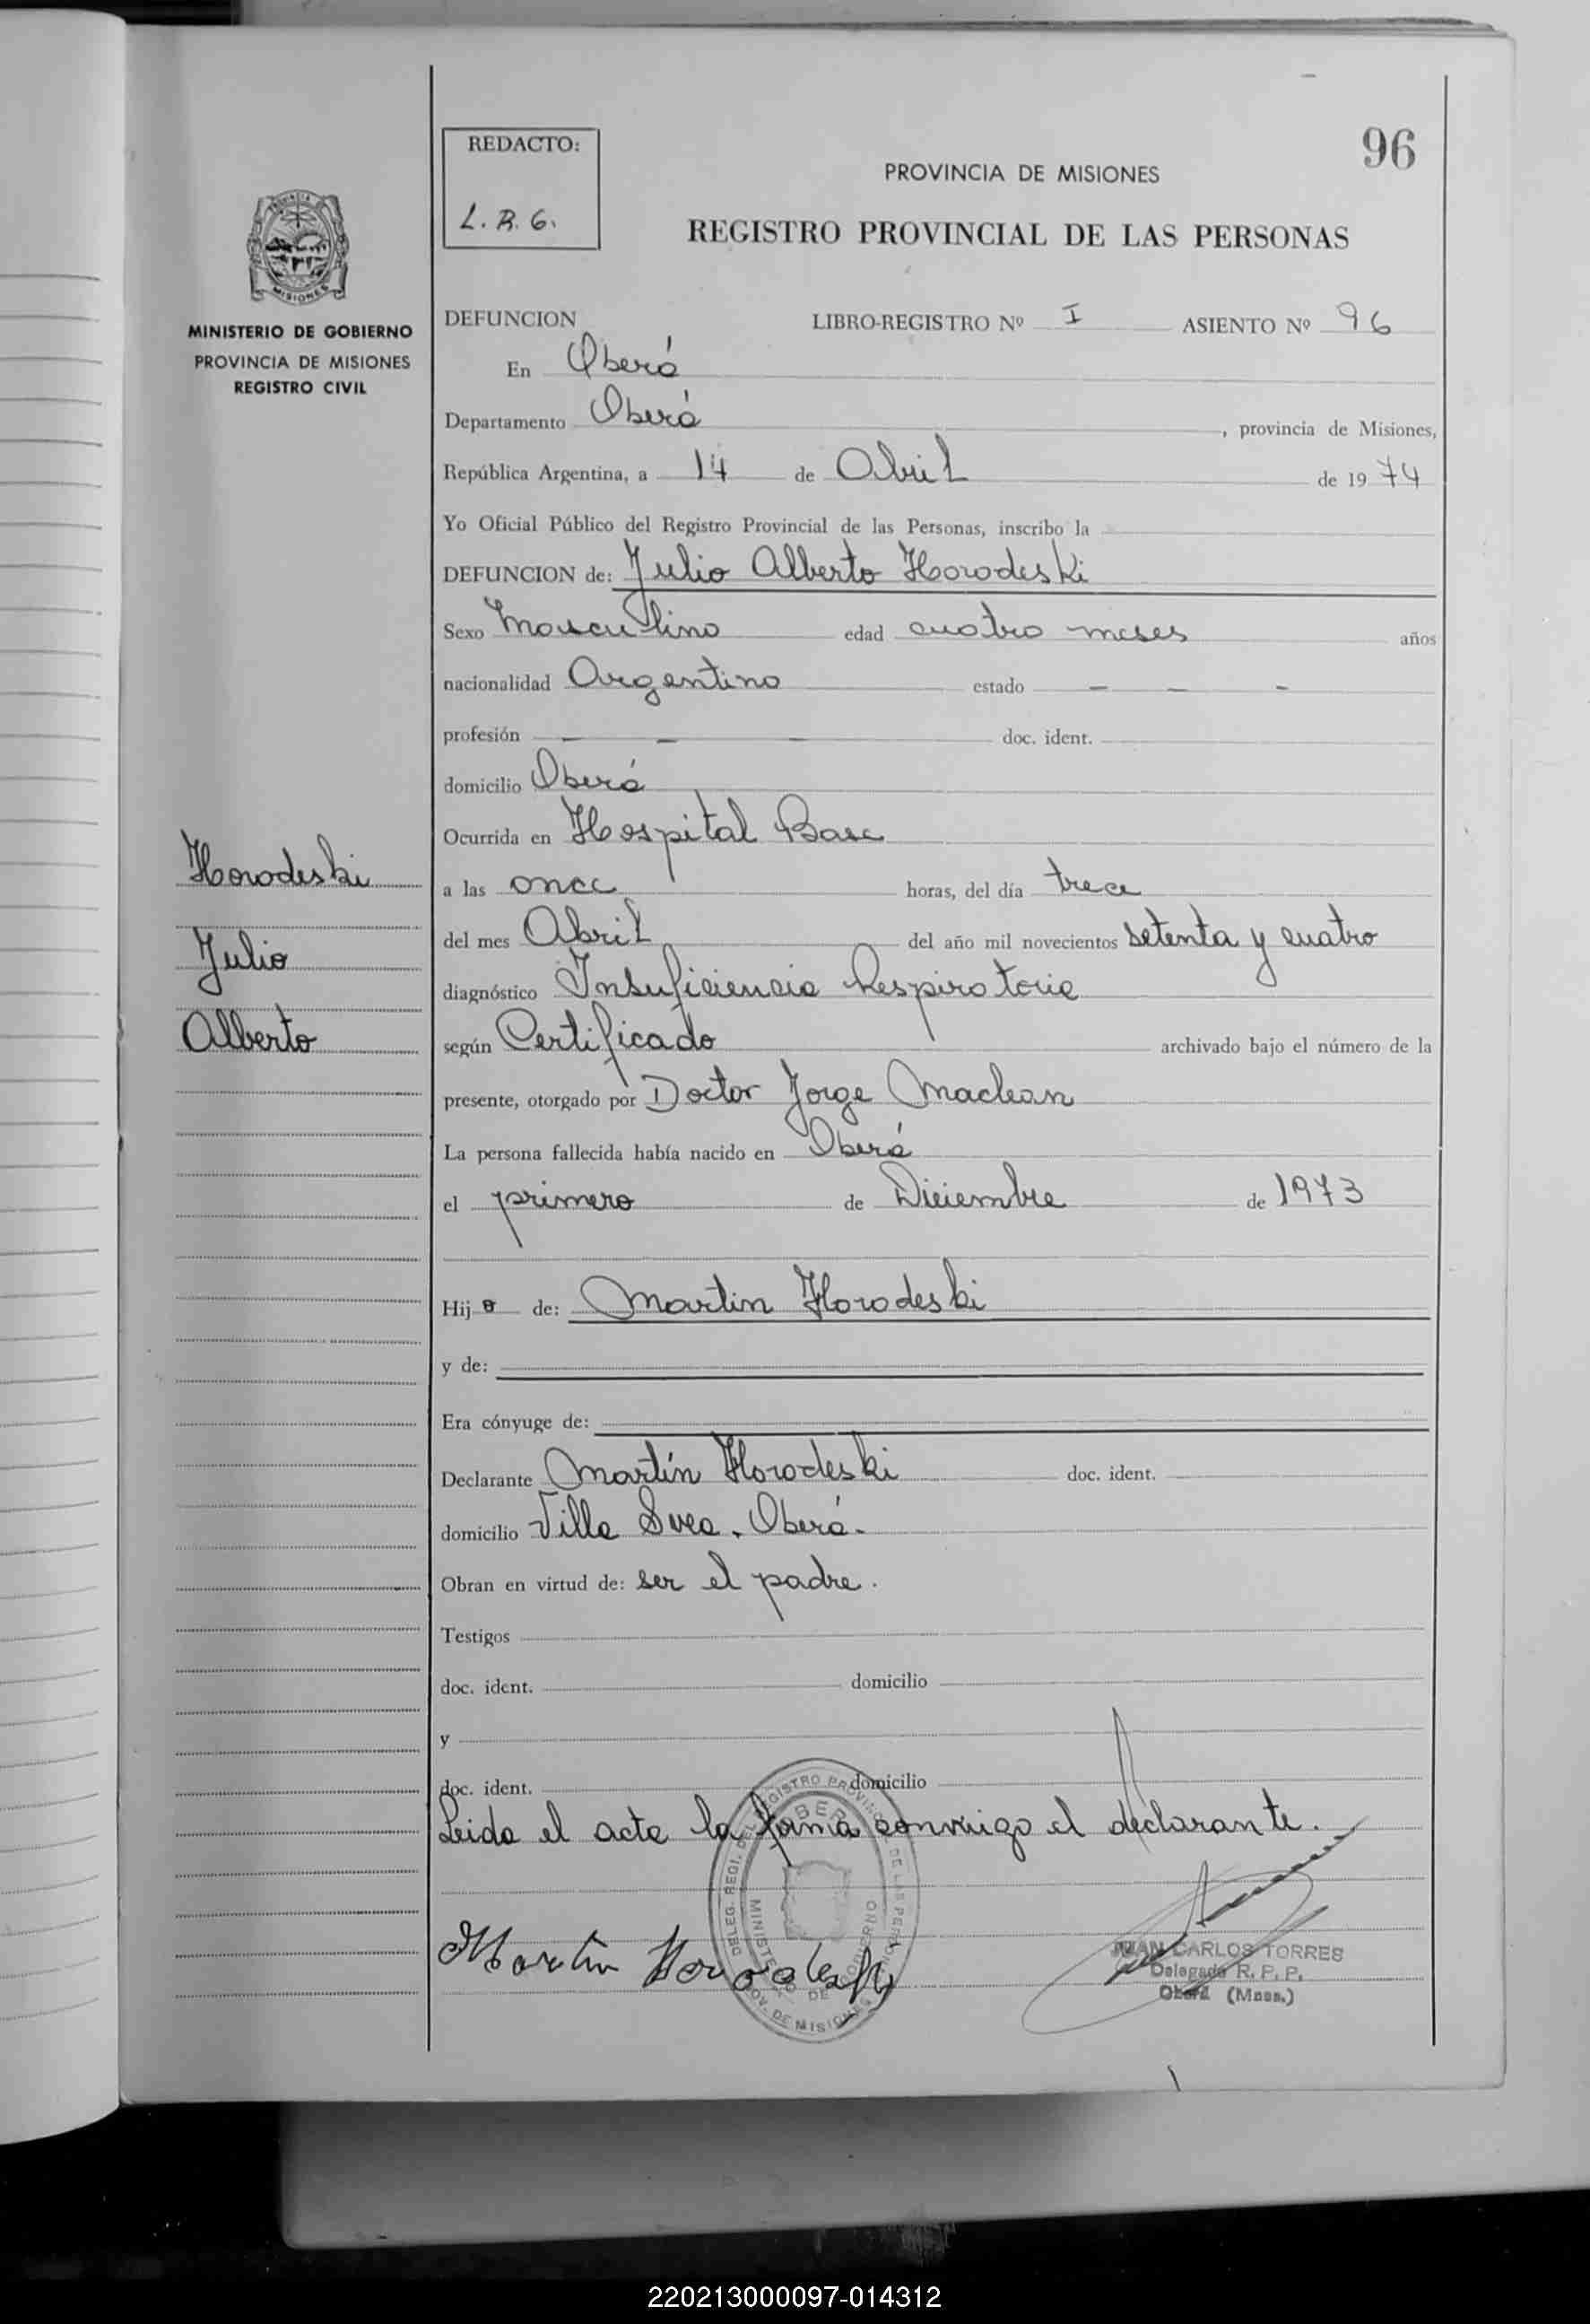 96
REDACTO:
L. R. G.
PROVINCIA DE MISIONES
REGISTRO PROVINCIAL DE LAS PERSONAS
MISIONES
MINISTERIO DE GOBIERNO
PROVINCIA DE MISIONES
REGISTRO CIVIL
DEFUNCION LIBRO-REGISTRO Nº I ASIENTO Nº 96
En Oberá
Departamento Oberá, provincia de Misiones,
República Argentina, a 14 de Abril de 1974
Yo Oficial Público del Registro Provincial de las Personas, inscribo la
DEFUNCION de: Julio Alberto Horodeski
Sexo Masculino edad cuatro meses años
nacionalidad Argentino estado - - -
profesión - - - doc. ident.
domicilio Oberá
Ocurrida en Hospital Base
a las once horas, del día trece
del mes Abril del año mil novecientos setenta y cuatro
diagnóstico Insuficiencia Respiratoria
según Certificado archivado bajo el número de la
presente, otorgado por Doctor Jorge Maclean
La persona fallecida había nacido en Oberá
el primero de Diciembre de 1973
Horodeski
Julio
Alberto
Hijo de: Martin Horodeski
y de:
Era cónyuge de:
Declarante Martín Horodeski doc. ident.
domicilio Villa Svea. Oberá.
Obran en virtud de: ser el padre.
Testigos
doc. ident. domicilio
y
doc. ident. domicilio
Leida el acta la firma conmigo el declarante.
Martin Horodeski
JUAN CARLOS TORRES
Delegado R. P. P.
Oberá (Mnes.)
220213000097-014312